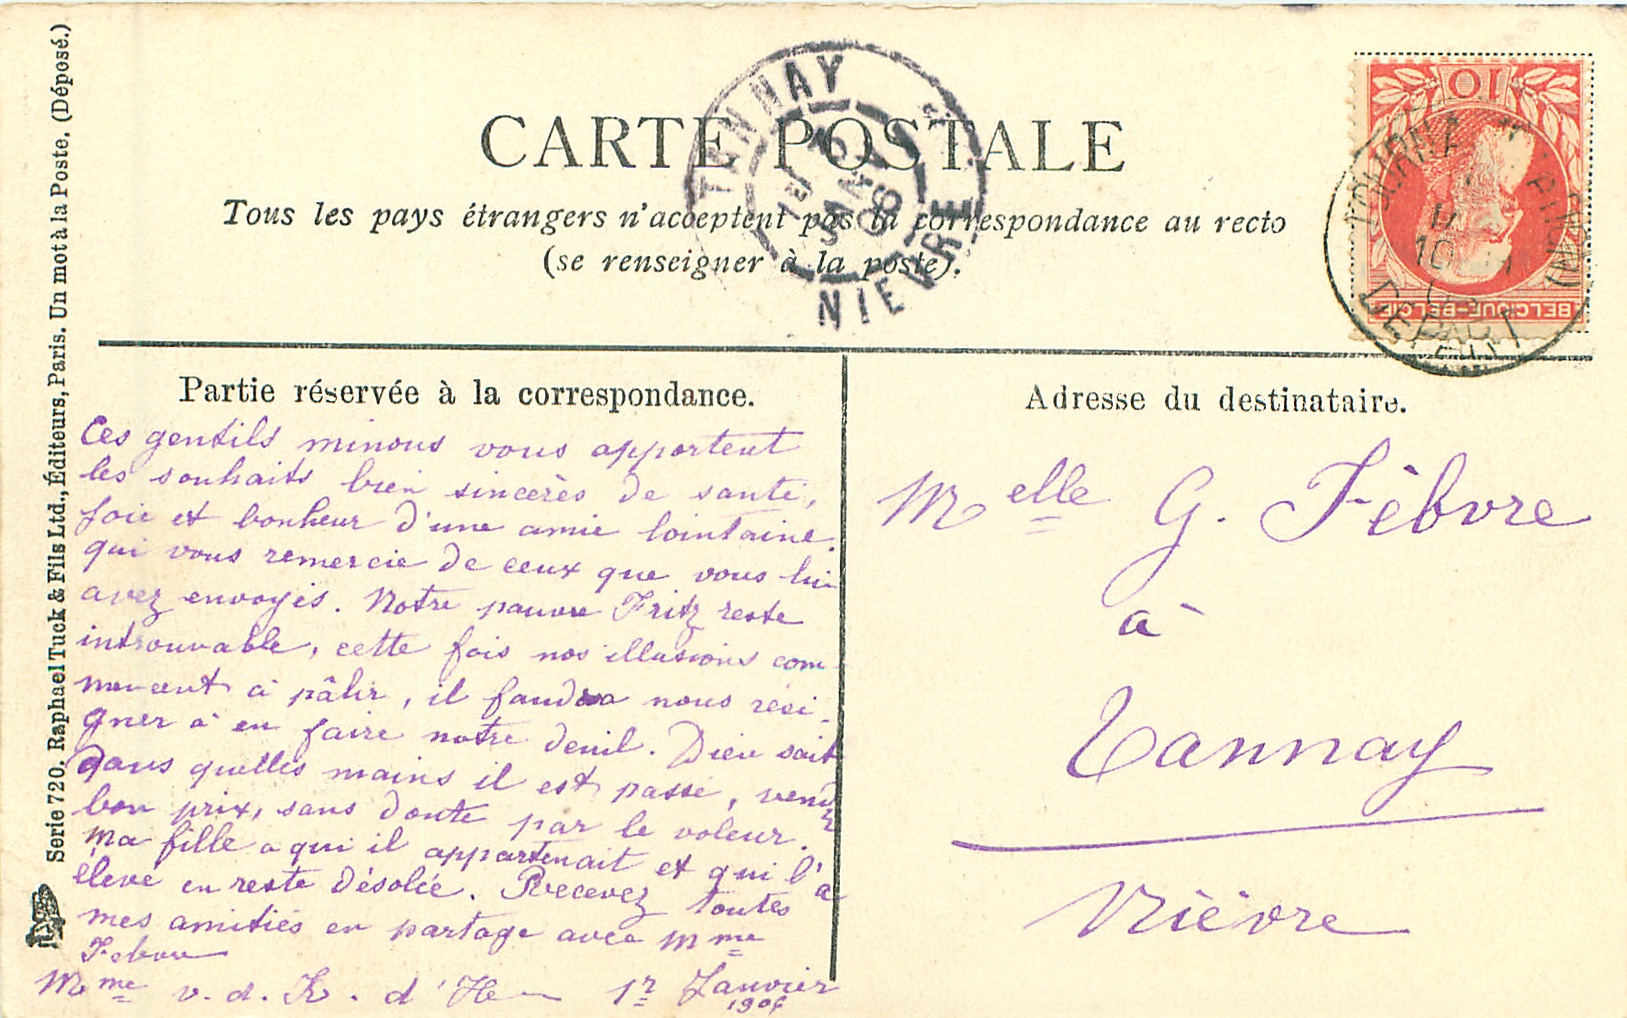 CARTE POSTALE
Tous les pays étrangers n'acceptent pas la correspondance au recto
(se renseigner à la poste).
TANNAY
NIEVRE
10
BELGIQUE-BELGIË
DEPART
Partie réservée à la correspondance.
Ces gentils minous vous apportent
les souhaits bien sincères de santé,
joie et bonheur d'une amie lointaine.
qui vous remercie de ceux que vous lui
avez envoyés. Notre pauvre Fritz reste
introuvable, cette fois nos illusions com
mencent à pâlir, il faudra nous rési-
gner à en faire notre deuil. Dieu sait
dans quelles mains il est passé, vendu
bon prix, sans doute par le voleur.
Ma fille a qui il appartenait et qui l'a
élevé en reste désolée. Recevez toutes
mes amitiés en partage avec Mme
Febvre
Mme v. d. K. d'He 1r Janvier
1906
Adresse du destinataire.
Melle G. Fèbvre
à
Tannay
Nièvre
Serie 720, Raphael Tuck & Fils Ltd., Éditeurs, Paris. Un mot à la Poste. (Déposé.)